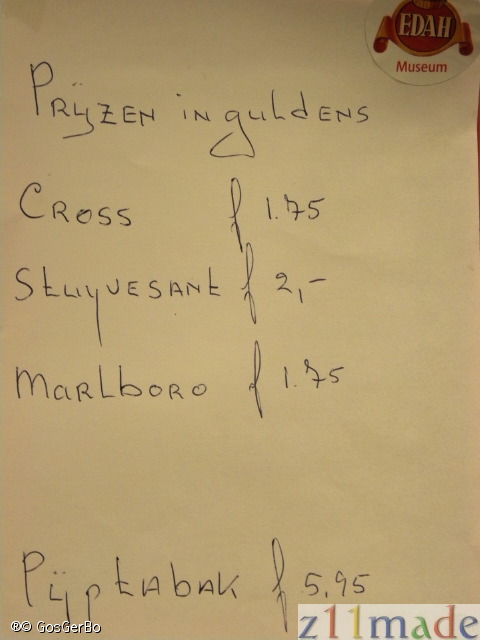 EDAH
Museum
Prijzen in guldens
Cross f 1.75
Stuyvesant f 2,-
Marlboro f 1.75
Pijptabak f 5,95
z11made
®© GosGerBo